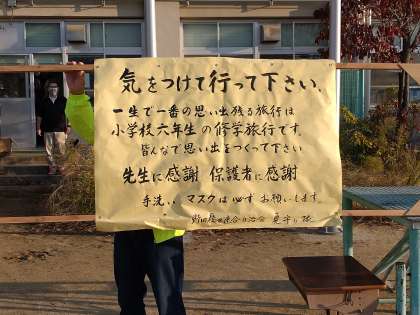 気をつけて行って下さい。
一生で一番の思い出残る旅行は
小学校六年生の修学旅行です。
皆んなで思い出をつくって下さい
先生に感謝 保護者に感謝
手洗い、マスクは必ずお願いします。
連合自治会 見守り隊